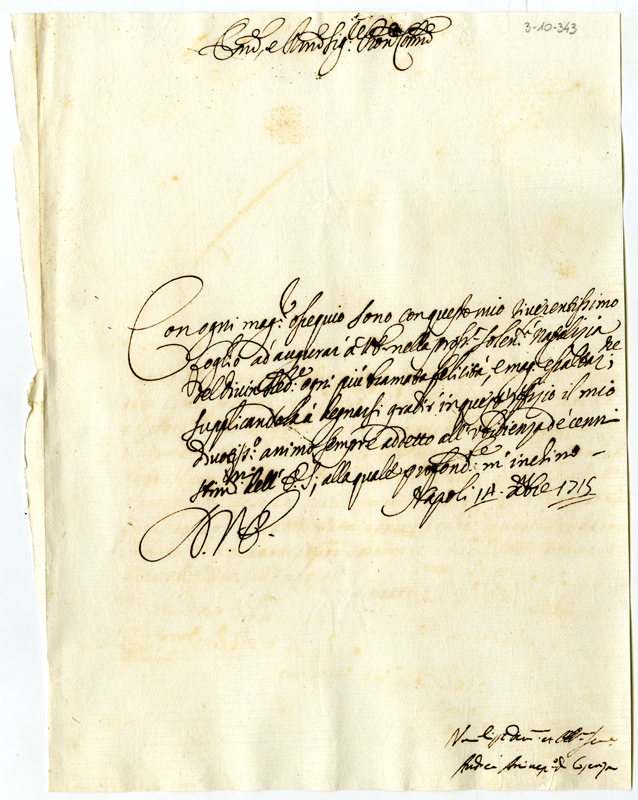 3-10-343
Em.mo, e R.mo Sig.re
Con ogni mag.r ossequio sono con questo mio riverentissimo
foglio ad augurar à V.E. nella pross.a solen.tà Natalizia
del divin ogni più bramata felicità, e mag.re esaltaz.ne;
supplicandola à degnarsi gradir in quest' offizio il mio
divotiss.o animo sempre addetto all' ubbidienza de' cenni
stim.mi dell' E.S; alla quale profond.te m' inchino -
Napoli 14. Xbre 1715
D.V.E.
Arcivesc.o di Cosenza